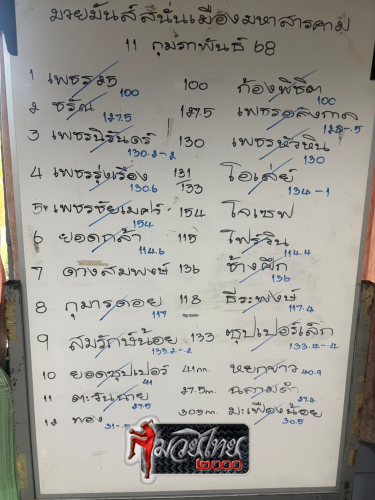 มวยมันส์สนั่นเมืองมหาสารคาม
11 กุมภาพันธ์ 68
1 เพชร 100 ก้องพิชิต
100 100
2 ชรัณ 127.5 เพชร
127.5
3 เพชรนิรันดร์ 130 เพชรหัวหิน
130.2-.2 130
4 เพชรรุ่งเรือง 131 133 โอเล่ย์
130.6 134-1
5 เพชรชัยเมศร์ 154 โลเซฟ
154
6 ยอดกล้า 115 ไฟร์วิน
114.6 114.4
7 ดาวสมพงษ์ 136 ช้างศึก
136
8 กุมารดอย 118 ธีระพงษ์
117 117.4
9 สมรักษ์น้อย 133 ซุปเปอร์เล็ก
133.2-.2 133.4-.4
10 ยอดซุปเปอร์ 41 กก. หยกขาว
41 40.9
11 ตะวันฉาย 27.5 กก. ฉลามดำ
27.5 27.4
12 ทอง กก. มะเฟืองน้อย
30.5
มวยไทย
๒๐๐๐